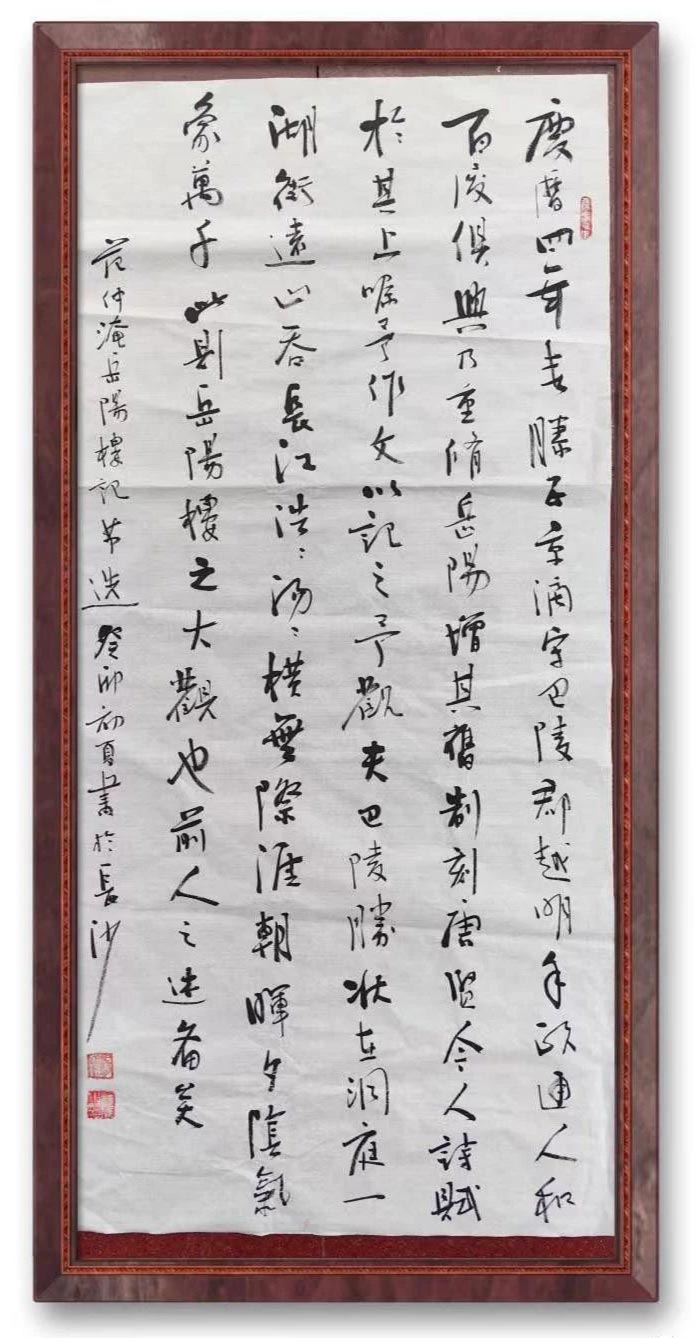 慶曆四年春滕子京謫守巴陵郡越明年政通人和
百廢俱興乃重脩岳陽增其舊制刻唐賢今人詩賦
於其上囑予作文以記之予觀夫巴陵勝狀在洞庭一
湖銜遠山吞長江浩〻湯〻橫無際涯朝暉夕陰氣
象萬千此則岳陽樓之大觀也前人之述備矣
范仲淹岳陽樓記節選癸卯初夏書於長沙